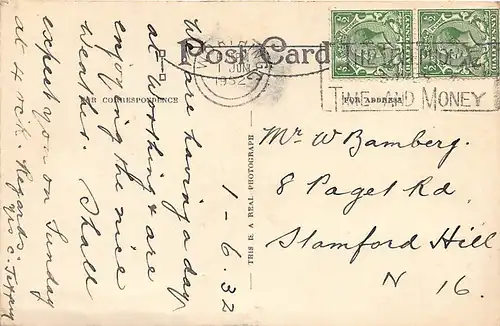 Post Card
FOR CORRESPONDENCE
FOR ADDRESS
THIS IS A REAL PHOTOGRAPH
1 JUN
1932
TIME AND MONEY
1-6.32
We are having a day
at Worthing & are
enjoying the nice
weather. Shall
expect you on Sunday
at 4 o'ck. Regards.
Mr W Bamberg.
8 Paget Rd,
Stamford Hill
N 16.